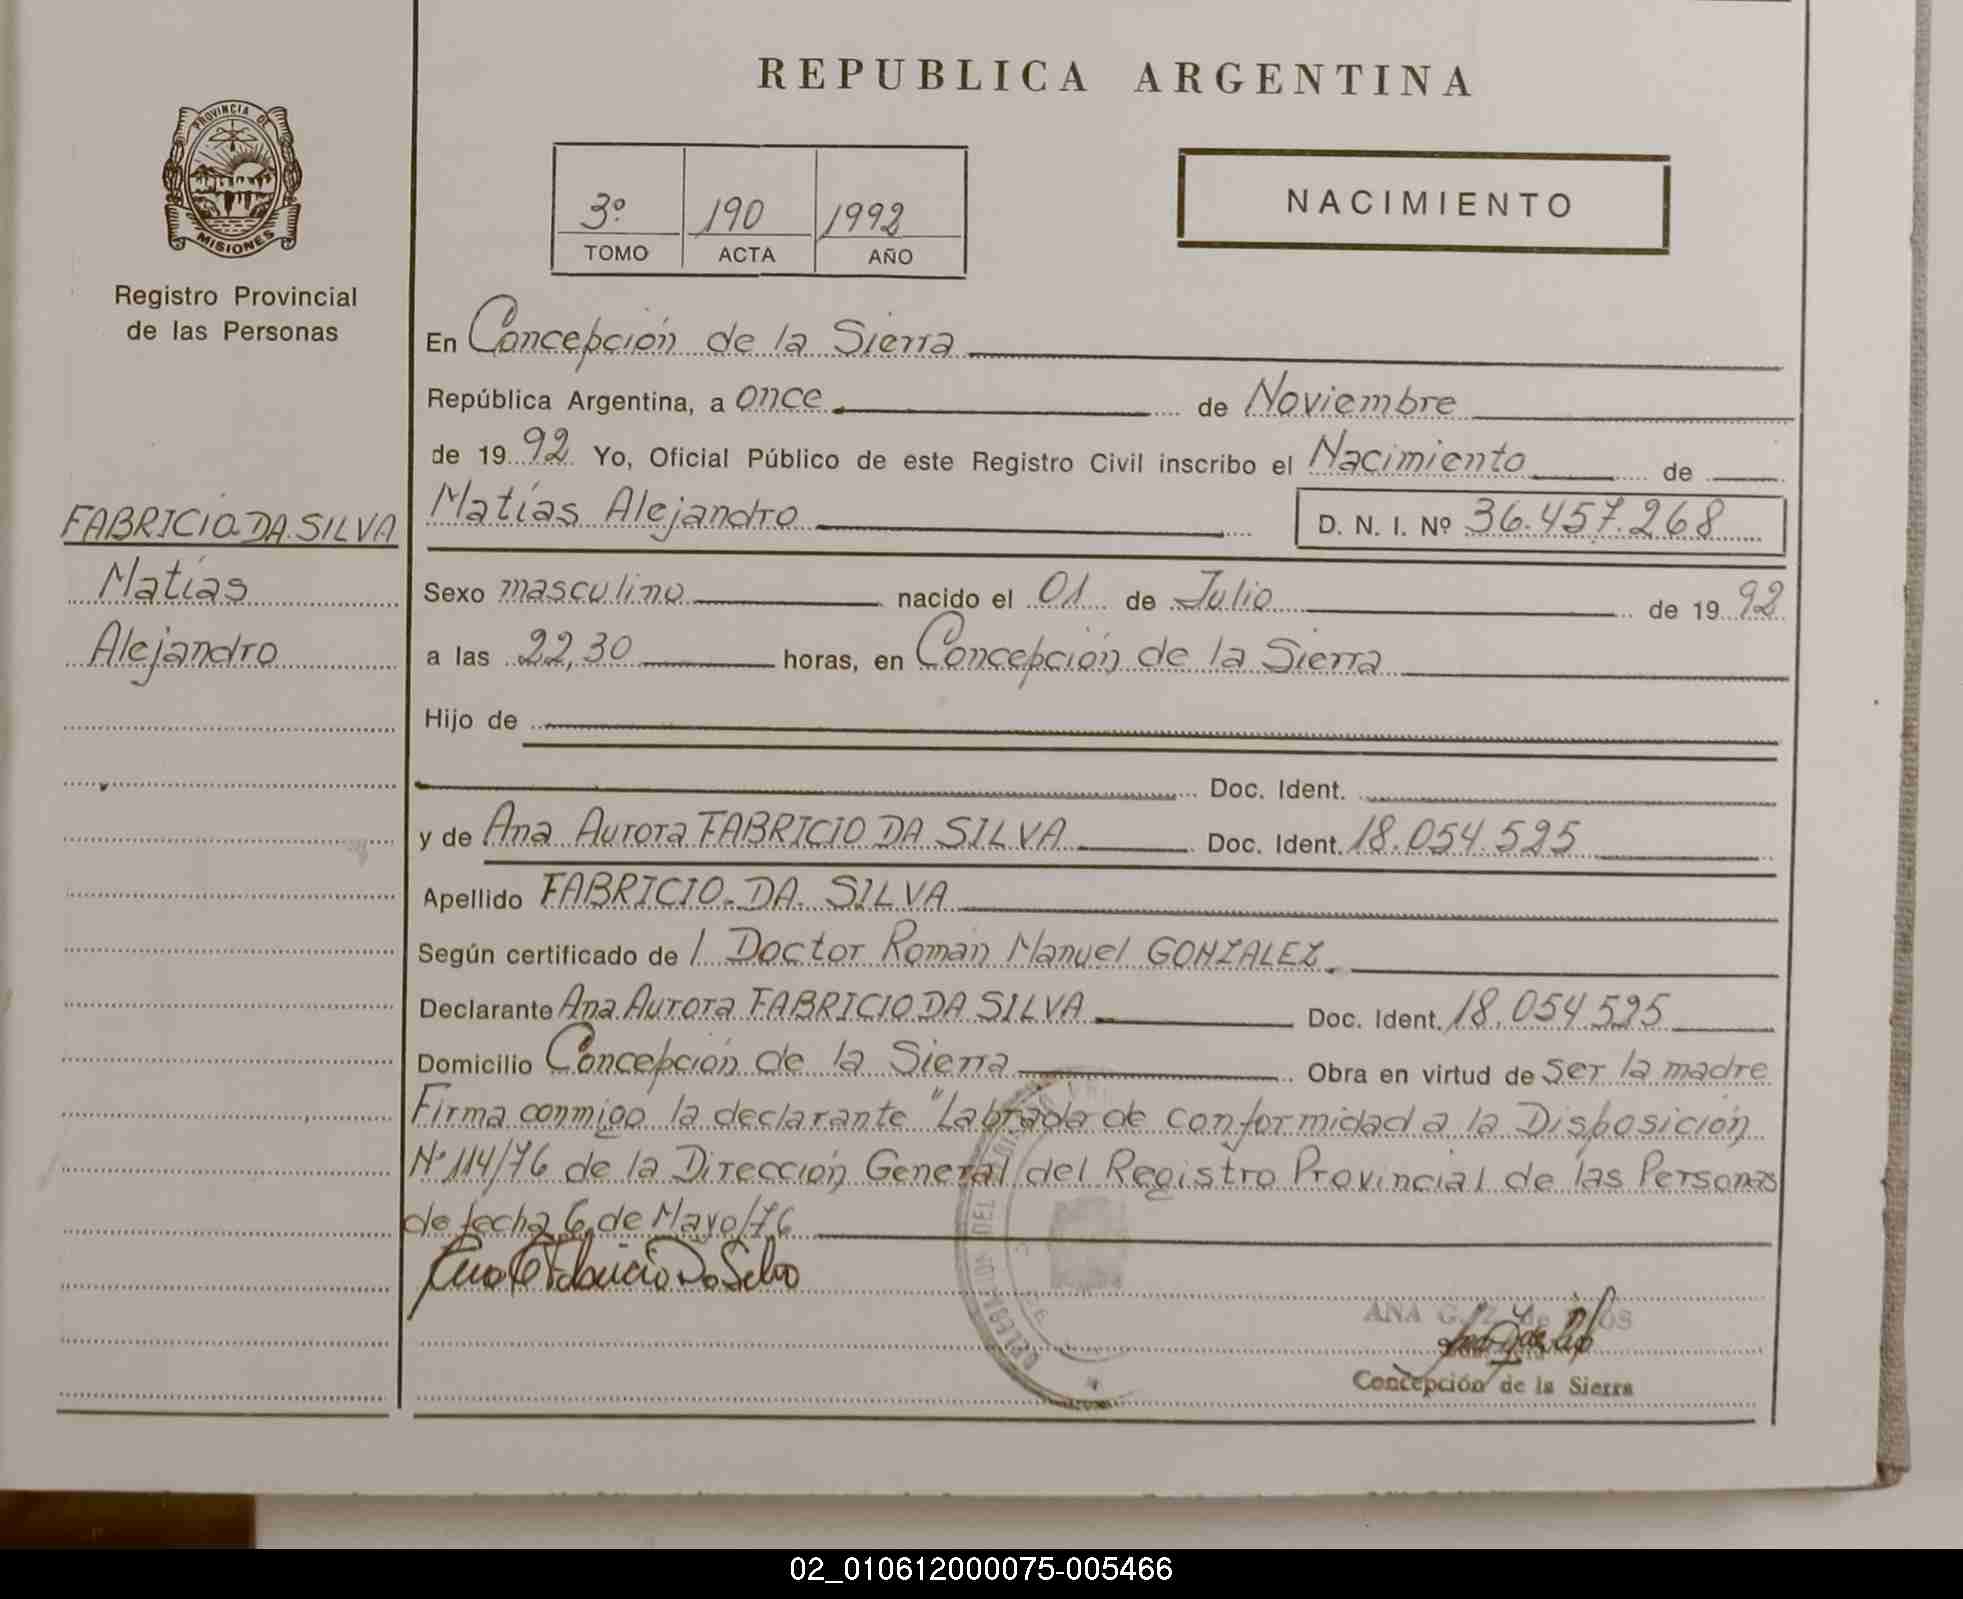 REPUBLICA ARGENTINA
PROVINCIA DE
MISIONES
Registro Provincial
de las Personas
3º 190 1992
TOMO ACTA AÑO
NACIMIENTO
En Concepción de la Sierra
República Argentina, a once de Noviembre
de 1992 Yo, Oficial Público de este Registro Civil inscribo el Nacimiento de
FABRICIO DA SILVA
Matías
Alejandro
Matías Alejandro D. N. I. Nº 36.457.268
Sexo masculino nacido el 01 de Julio de 1992
a las 22,30 horas, en Concepción de la Sierra
Hijo de
Doc. Ident.
y de Ana Aurora FABRICIO DA SILVA Doc. Ident. 18.054.595
Apellido FABRICIO DA SILVA
Según certificado de l Doctor Román Manuel GONZALEZ.
Declarante Ana Aurora FABRICIO DA SILVA Doc. Ident. 18.054.595
Domicilio Concepción de la Sierra Obra en virtud de ser la madre
Firma conmigo la declarante "Labrada de conformidad a la Disposición
Nº 114/76 de la Dirección General del Registro Provincial de las Personas
de fecha 6 de Mayo/76
Fabricio Da Silva
DELEGACION DEL
ANA G.
Concepción de la Sierra
02_010612000075-005466